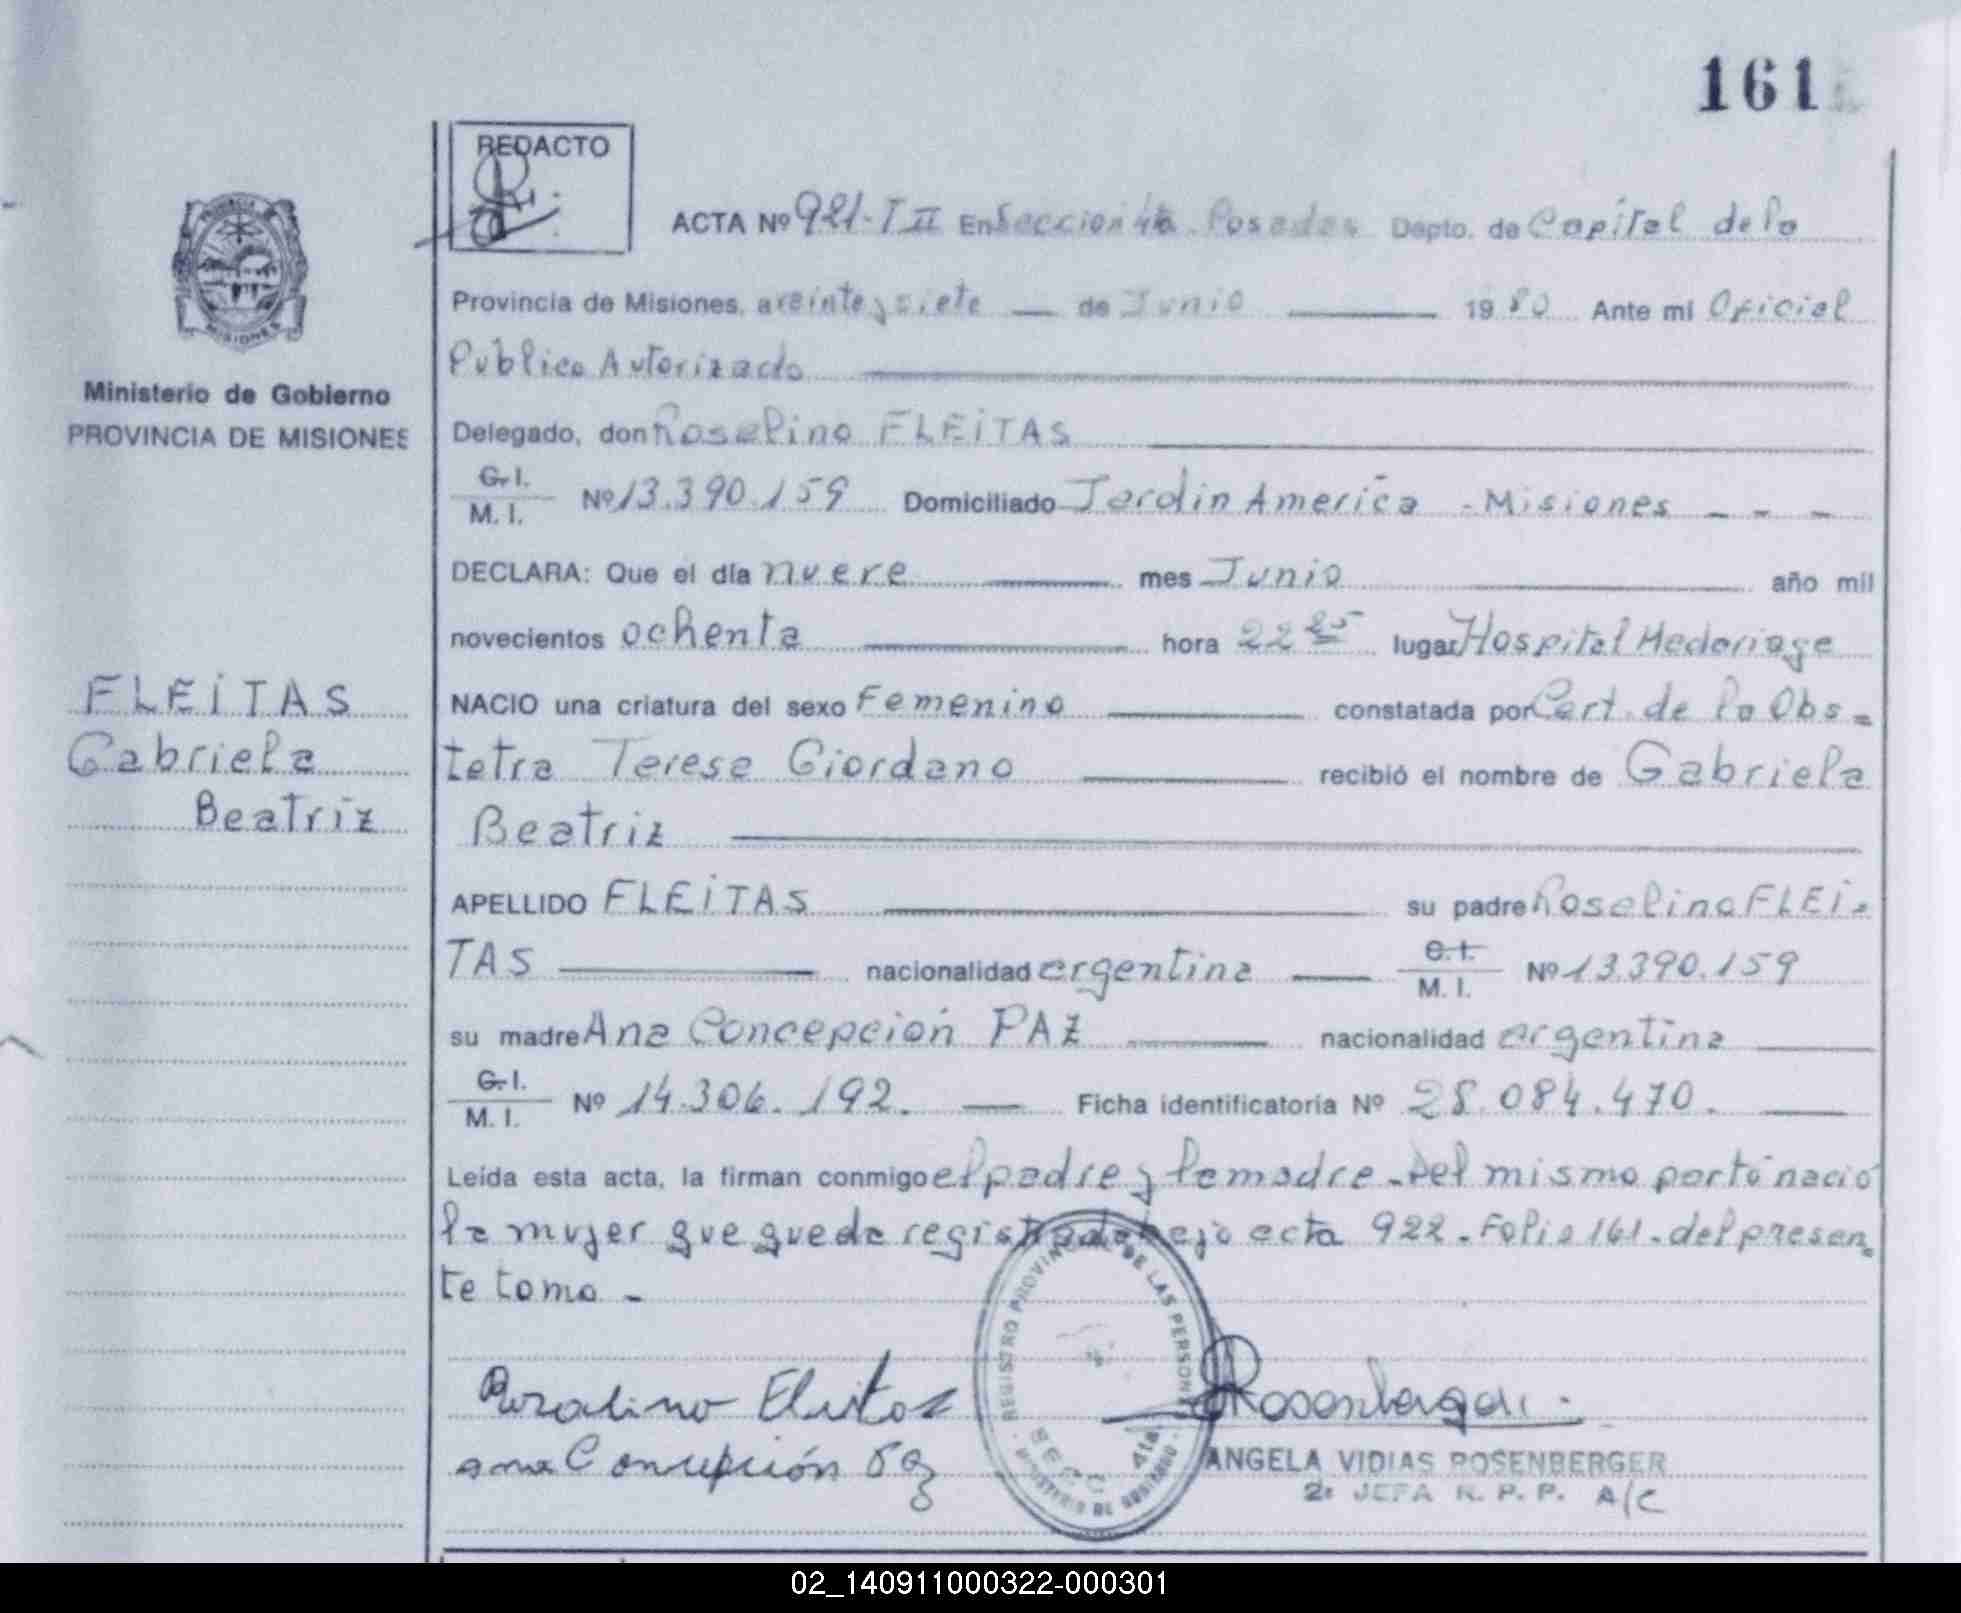 161
REDACTO
ACTA Nº 921-T II En Seccion 4ta Posadas Depto. de Capital de la
Provincia de Misiones, a veinte y siete — de Junio — 1980 Ante mi Oficial
Publico Autorizado
Delegado, don Roselino FLEiTAS
C.I.
M. I. Nº 13.390.159 Domiciliado Jardin America - Misiones - - -
DECLARA: Que el día nueve mes Junio año mil
novecientos ochenta hora 22 25 lugar Hospital Madariaga
NACIO una criatura del sexo Femenino constatada por Cert. de la Obs-
tetra Teresa Giordano recibió el nombre de Gabriela
Beatriz
APELLIDO FLEiTAS su padre Roselino FLEi-
TAS nacionalidad argentina C.I.
M. I. Nº 13.390.159
su madre Ana Concepción PAZ nacionalidad argentina
C.I.
M. I. Nº 14.306.192. — Ficha identificatoria Nº 28.084.470. —
Leída esta acta, la firman conmigo el padre y la madre - Del mismo parto nació
la mujer que queda registrada bajo acta 922 - Folio 161 - del presen-
te tomo -
Rozalino Fleitas
ana Concepción Paz
Rosenberger
ANGELA VIDIAS ROSENBERGER
2ª JEFA R. P. P. A/C
REGISTRO PROVINCIAL DE LAS PERSONAS
SECC. 4ta.
MINISTERIO DE GOBIERNO
PROVINCIA DE MISIONES
Ministerio de Gobierno
PROVINCIA DE MISIONES
FLEiTAS
Gabriela
Beatriz
02_140911000322-000301